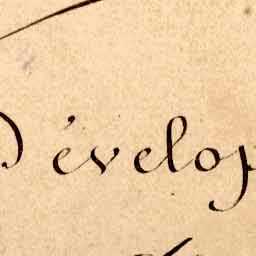 Dévelop